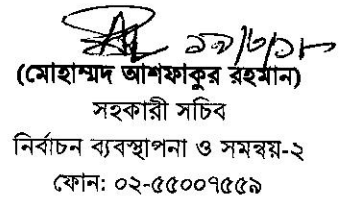 ১৯/৬/১৮
(মোহাম্মদ আশফাকুর রহমান)
সহকারী সচিব
নির্বাচন ব্যবস্থাপনা ও সমন্বয়-২
ফোন: ০২-৫৫০০৭৫৫৯